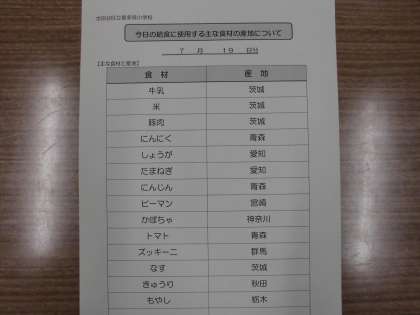 今日の給食に使用する主な食材の産地について
7 月 19 日分
【主な食材と産地】
食 材 産 地
牛乳 茨城
米 茨城
豚肉 茨城
にんにく 青森
しょうが 愛知
たまねぎ 愛知
にんじん 青森
ピーマン 宮崎
かぼちゃ 神奈川
トマト 青森
ズッキーニ 群馬
なす 茨城
きゅうり 秋田
もやし 栃木